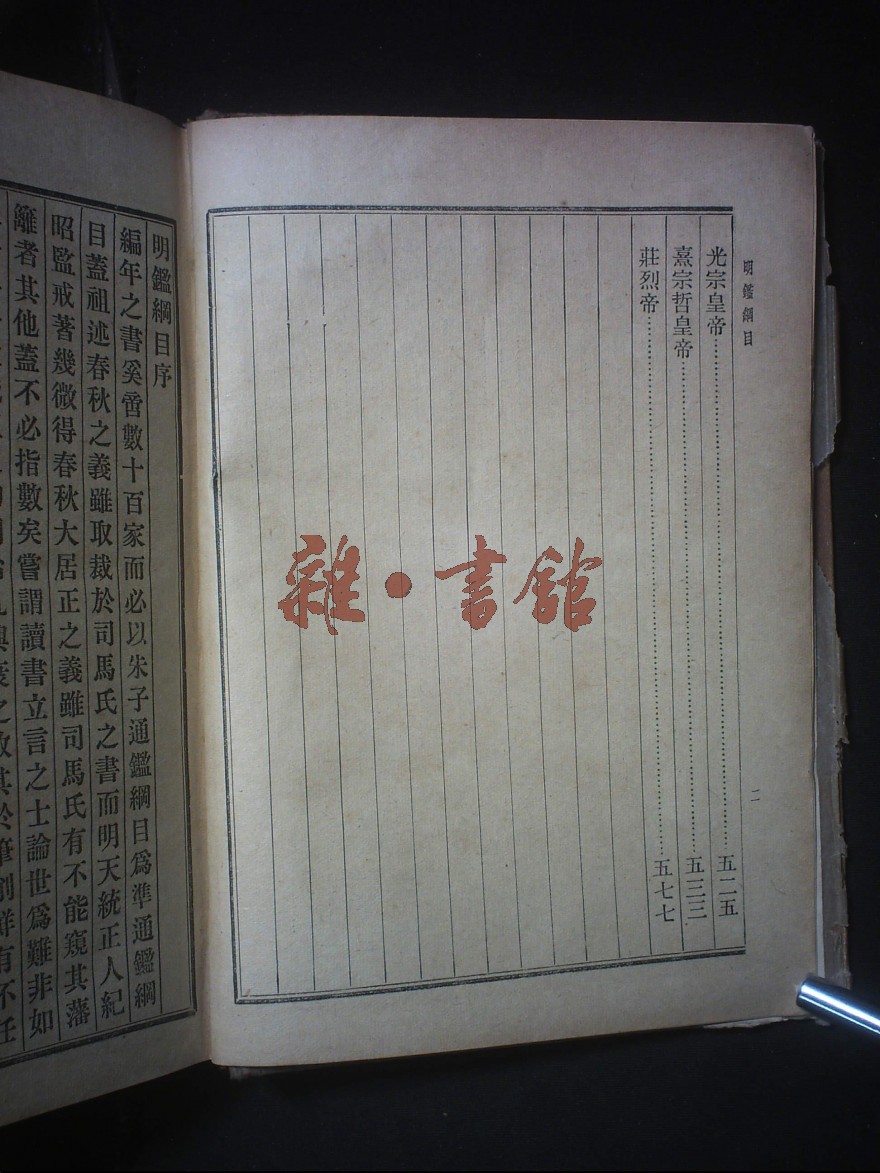 明鑑綱目
光宗皇帝……五二五
熹宗哲皇帝……五三三
莊烈帝……五七七
二
雜·書館
明鑑綱目序
編年之書奚啻數十百家而必以朱子通鑑綱目爲準通鑑綱
目蓋祖述春秋之義雖取裁於司馬氏之書而明天統正人紀
昭監戒著幾微得春秋大居正之義雖司馬氏有不能窺其藩
籬者其他蓋不必指數矣嘗謂讀書立言之士論世爲難非如